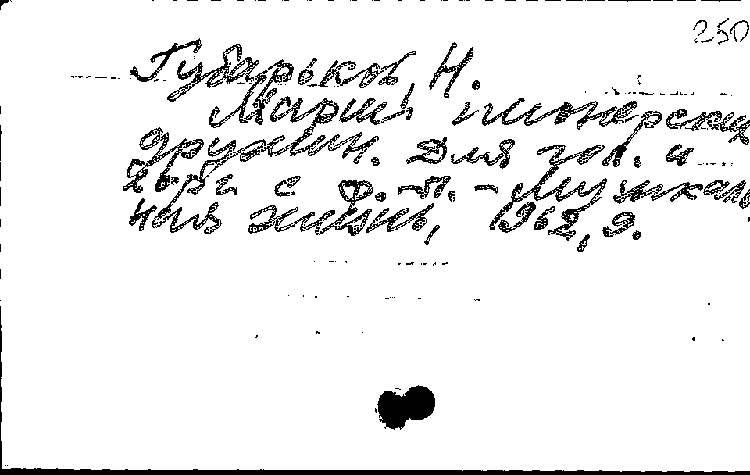 250
Губарьков, Н.
Марш пионерских
дружин. Для гол. и
хора с ф.-п. - Музыкаль
ная жизнь, 1962, 9.